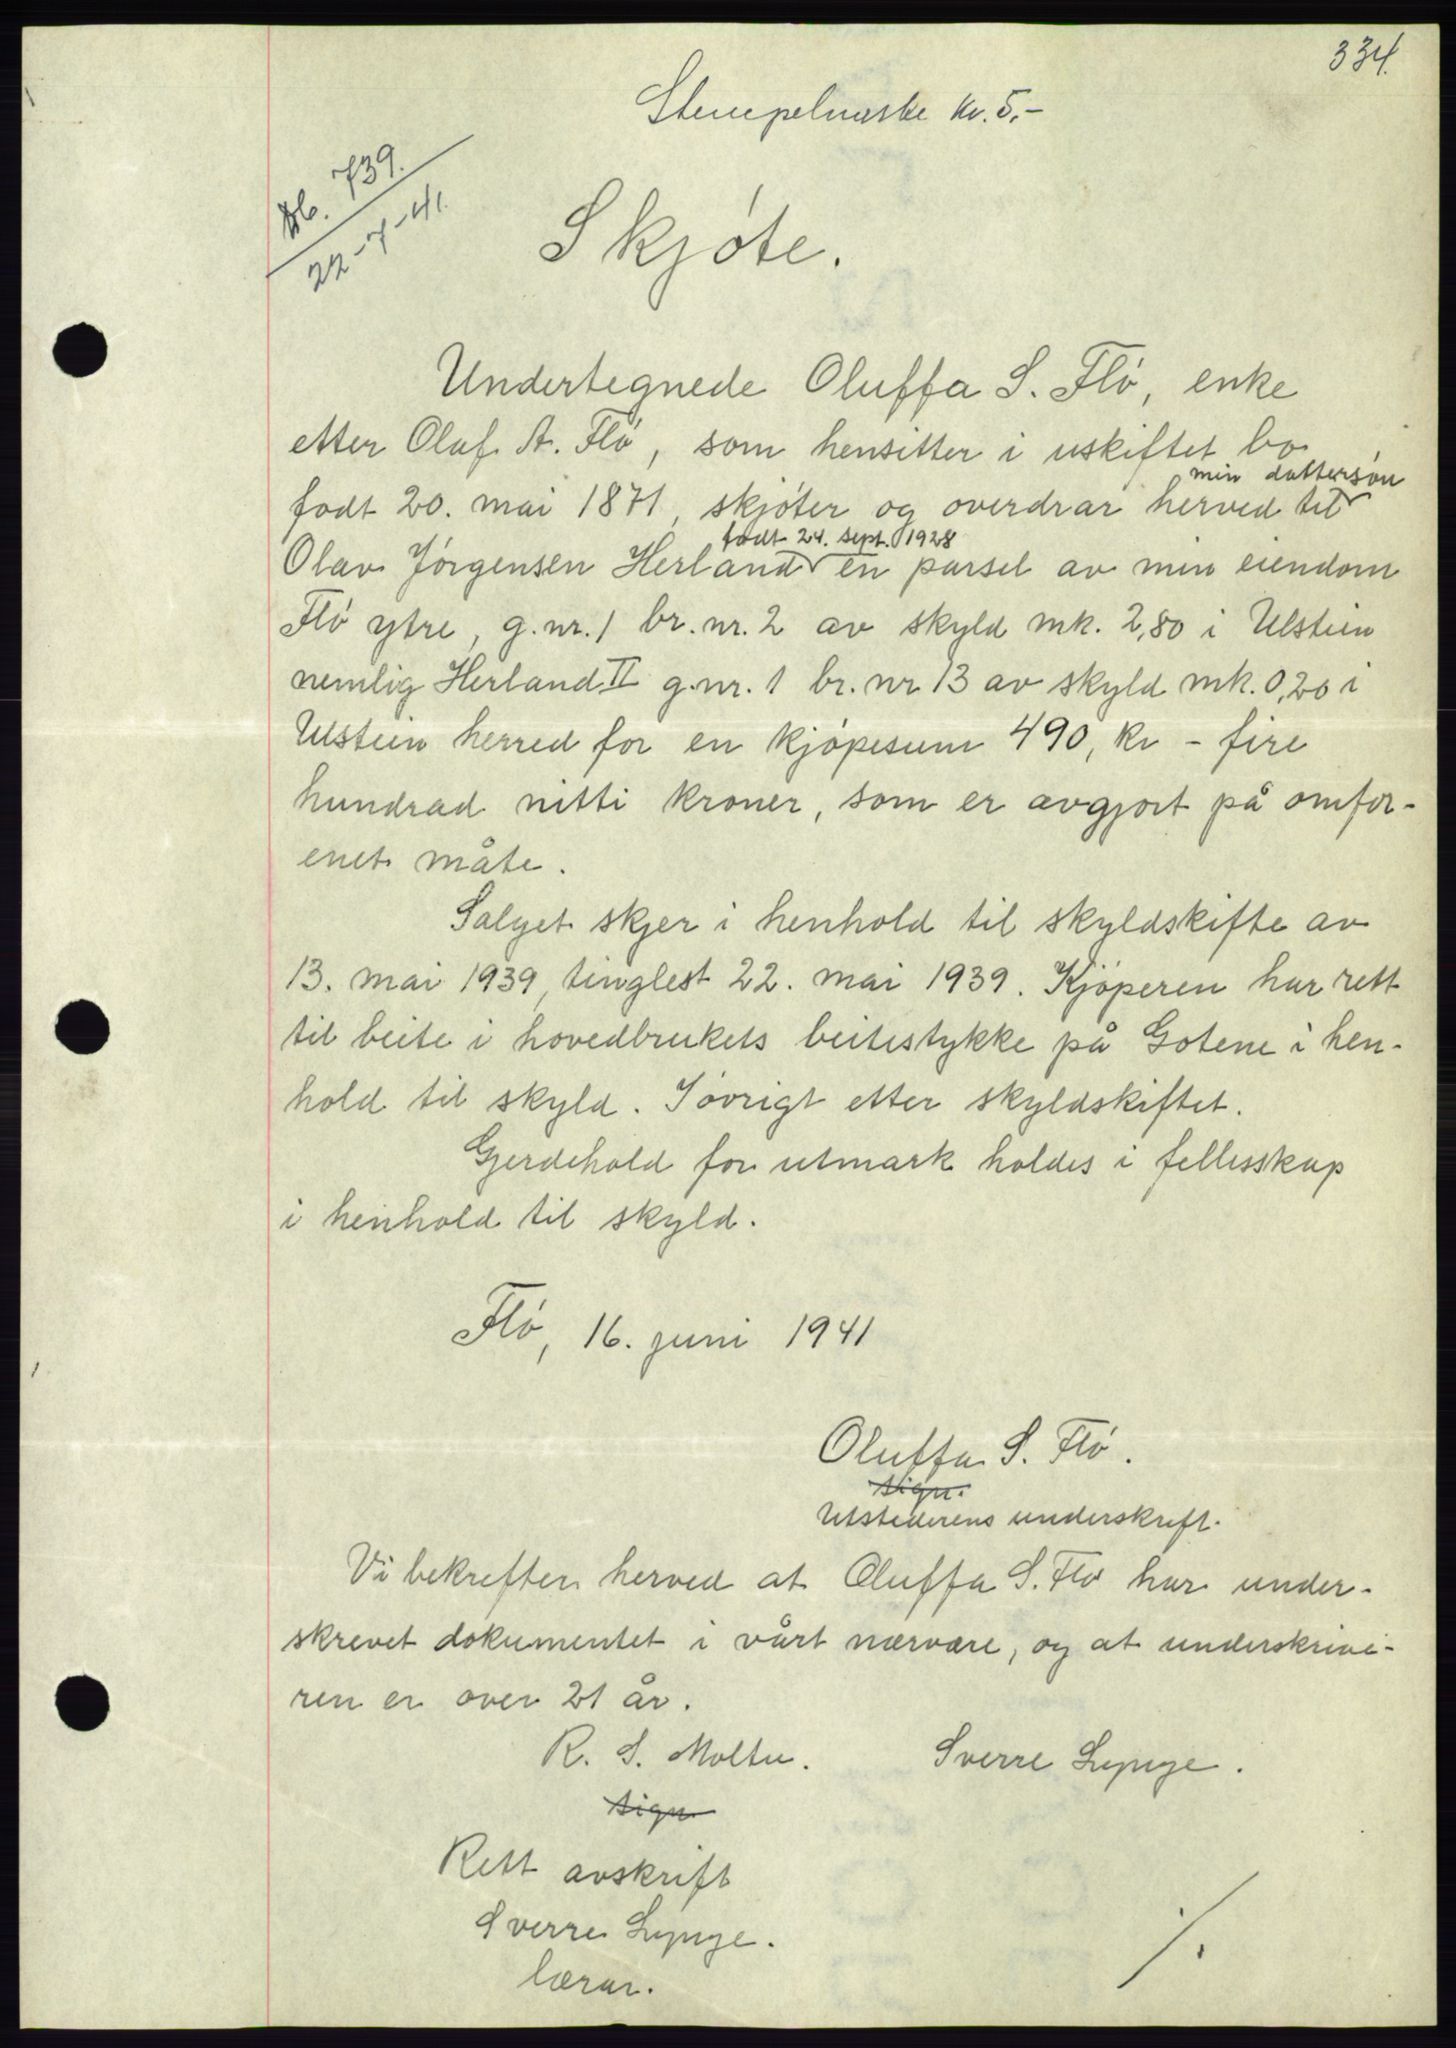 334.
Stempelmerke kr. 5.-
Db. 739.
22-7-41.
Skjöte.
Undertegnede Oluffa S. Flö, enke
etter Olaf A. Flö, som hensitter i uskiftet bo
min dattersön
födt 20. mai 1871, skjöter og overdrar herved til
födt 24. sept. 1928
Olav Jörgensen Herland en parsel av min eiendom
Flö ytre, g.nr. 1 br. nr. 2 av skyld mk. 2,80 i Ulstein
nemlig Herland II g.nr. 1 br. nr 13 av skyld mk. 0,20 i
Ulstein herred for en kjöpesum 490, kr - fire
hundrad nitti kroner, som er avgjort på omfor-
enet måte.
Salget skjer i henhold til skyldskifte av
13. mai 1939, tinglest 22. mai 1939. Kjöperen har rett
til beite i hovedbrukets beitestykke på Gotene i hen-
hold til skyld. I övrigt etter skyldskiftet.
Gjerdehold for utmark holdes i fellesskap
i henhold til skyld.
Flö, 16. juni 1941
Oluffa S. Flö.
sign.
Utstederens underskrift.
Vi bekrefter herved at Oluffa S. Flö har under-
skrevet dokumentet i vårt nærvære, og at underskrive-
ren er over 21 år.
R. S. Moltu. Sverre Lynge.
sign
Rett avskrift
Sverre Lynge.
lærar.
/.